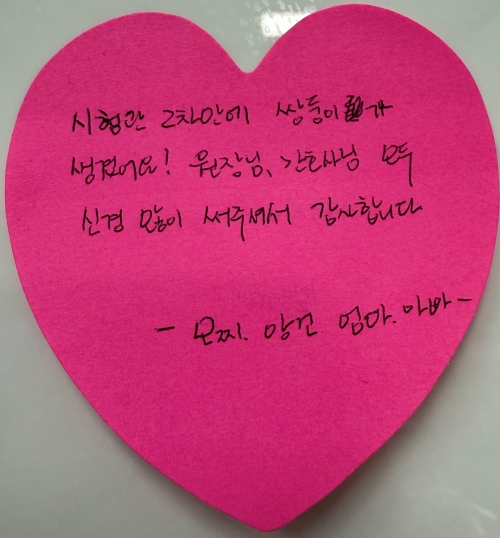 시험관 2차만에 쌍둥이가
생겼어요! 원장님, 간호사님 모두
신경 많이 써주셔서 감사합니다
- 모찌. 앙꼬 엄마. 아빠 -